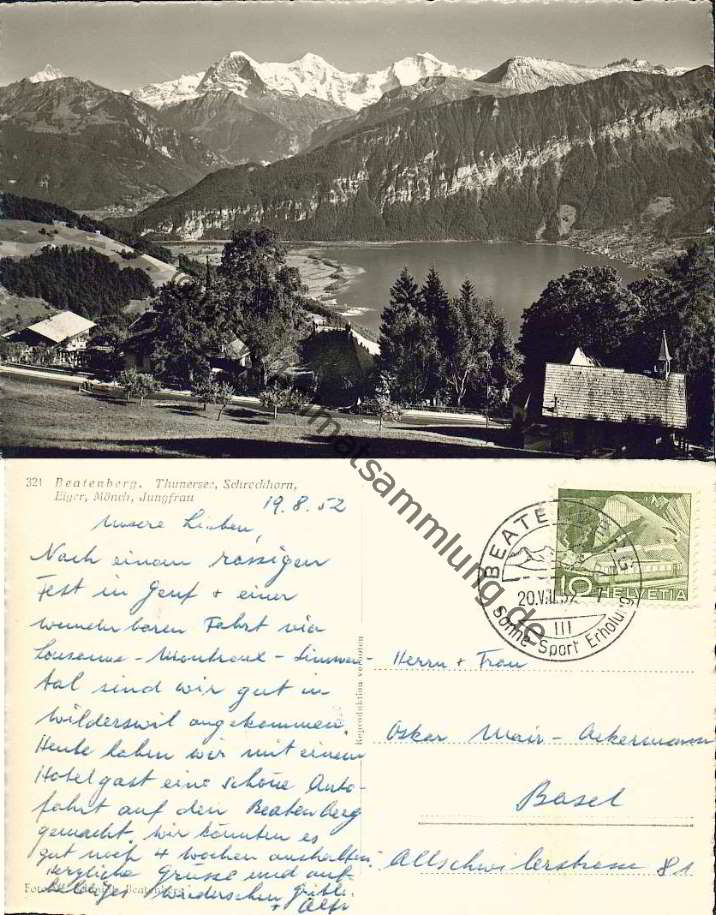 321 Beatenberg. Thunersee, Schreckhorn,
Eiger, Mönch, Jungfrau
19.8.52
Unsere Lieben,
Nach einem rassigen
Fest in Genf + einer
wunderbaren Fahrt via
Lausanne - Montreux - Simmen-
tal sind wir gut in
Wilderswil angekommen.
Heute haben wir mit einem
Hotelgast eine schöne Auto-
fahrt auf den Beatenberg
gemacht, wir könnten es
gut noch 4 Wochen aushalten
Herzliche Grüsse und auf
baldiges Wiedersehen
+ Alfr
Beatenberg
Reproduktion verboten
BEATENBERG
20.VIII.52-7
III
Sonne Sport Erholung
10 HELVETIA
Herrn + Frau
Oskar Mair-Ackermann
Basel
Allschwilerstrasse 81
heimatsammlung.de